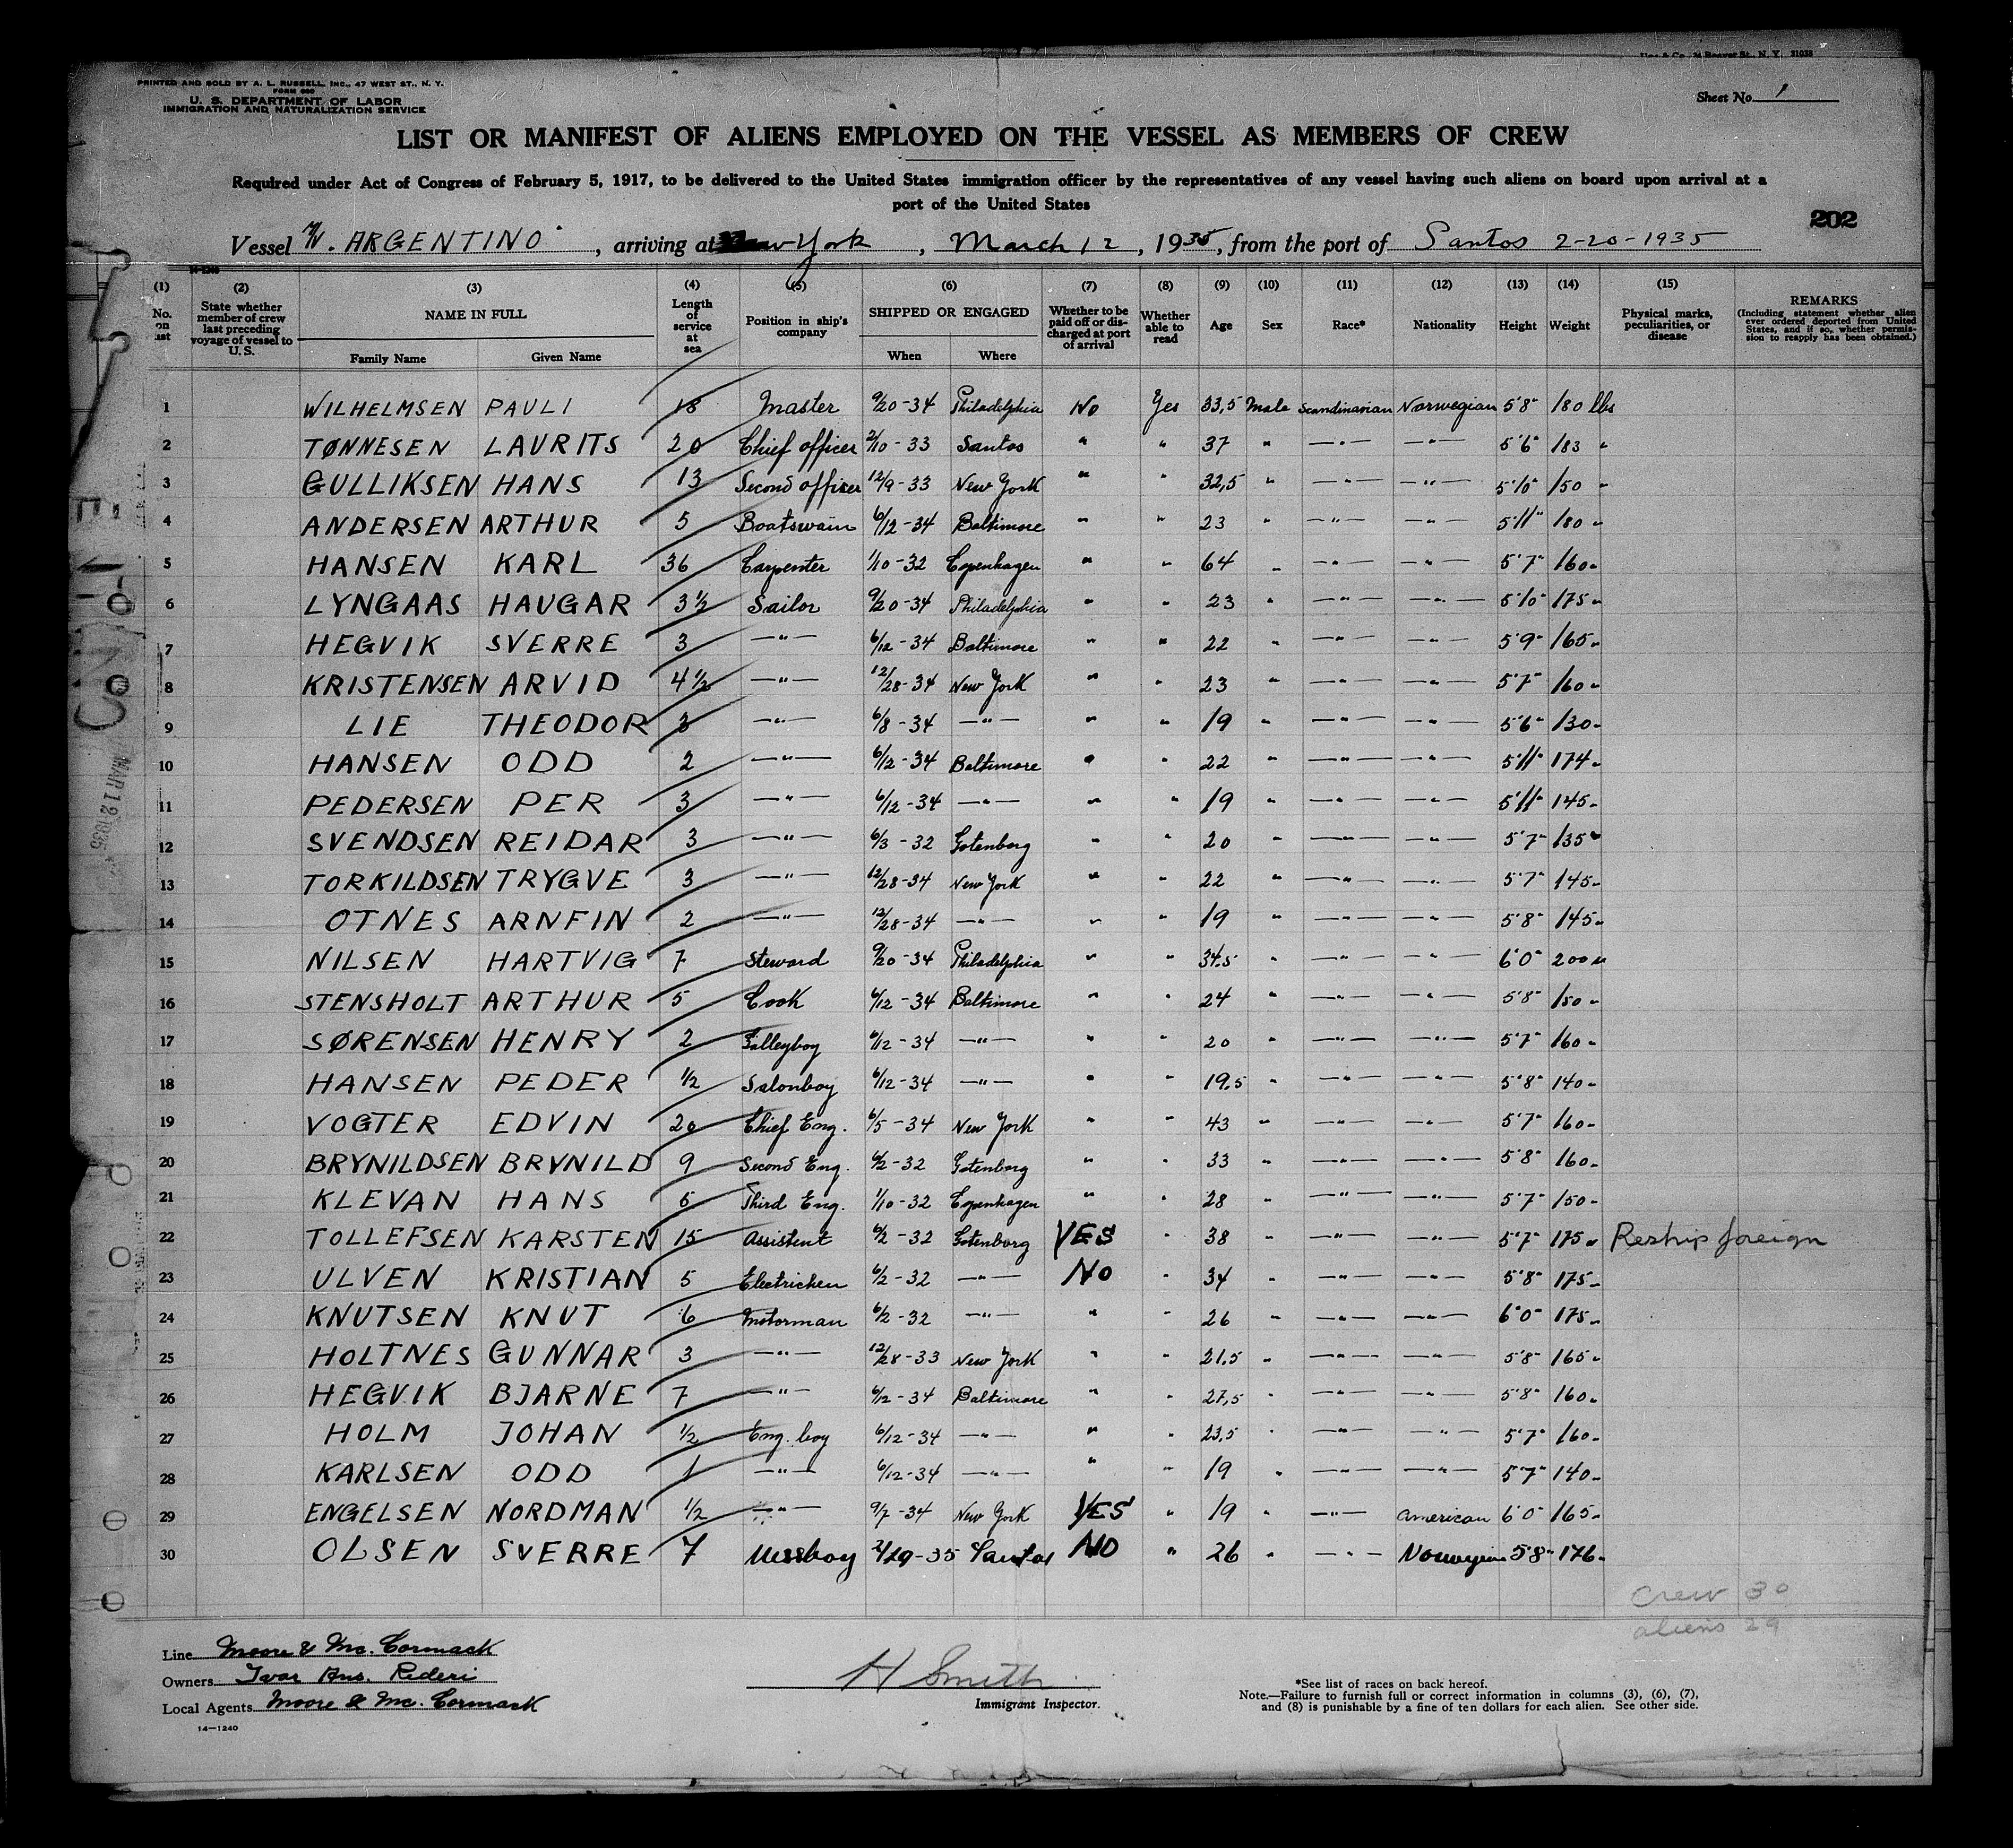 Sheet No. 1
PRINTED AND SOLD BY A. L. RUSSELL, INC., 47 WEST ST., N. Y.
U. S. DEPARTMENT OF LABOR
IMMIGRATION AND NATURALIZATION SERVICE
LIST OR MANIFEST OF ALIENS EMPLOYED ON THE VESSEL AS MEMBERS OF CREW
Required under Act of Congress of February 5, 1917, to be delivered to the United States immigration officer by the representatives of any vessel having such aliens on board upon arrival at a
port of the United States
202
Vessel M/V. ARGENTINO, arriving at New York, March 12, 1935, from the port of Santos 2-20-1935
(1) (2) (3) (4) (5) (6) (7) (8) (9) (10) (11) (12) (13) (14) (15)
No. on list | State whether member of crew last preceding voyage of vessel to U. S. | NAME IN FULL Family Name Given Name | Length of service at sea | Position in ship's company | SHIPPED OR ENGAGED When Where | Whether to be paid off or discharged at port of arrival | Whether able to read | Age | Sex | Race* | Nationality | Height | Weight | Physical marks, peculiarities, or disease | REMARKS (Including statement whether alien ever ordered deported from United States, and if so, whether permission to reapply has been obtained.)
1 WILHELMSEN PAULI 18 Master 9/20-34 Philadelphia No Yes 33,5 Male Scandinavian Norwegian 5'8" 180 lbs
2 TØNNESEN LAURITS 20 Chief officer 2/10-33 Santos " " 37 " —"— —"— 5'6" 183 "
3 GULLIKSEN HANS 13 Second officer 12/9-33 New York " " 32,5 " —"— —"— 5'10" 150 "
4 ANDERSEN ARTHUR 5 Boatswain 6/12-34 Baltimore " " 23 " —"— —"— 5'11" 180 "
5 HANSEN KARL 36 Carpenter 1/10-32 Copenhagen " " 64 " —"— —"— 5'7" 160 "
6 LYNGAAS HAUGAR 3 1/2 Sailor 9/20-34 Philadelphia " " 23 " —"— —"— 5'10" 175 "
7 HEGVIK SVERRE 3 —"— 6/12-34 Baltimore " " 22 " —"— —"— 5'9" 165 "
8 KRISTENSEN ARVID 4 1/2 —"— 12/28-34 New York " " 23 " —"— —"— 5'7" 160 "
9 LIE THEODOR 3 —"— 6/8-34 —"— " " 19 " —"— —"— 5'6" 130 "
10 HANSEN ODD 2 —"— 6/12-34 Baltimore " " 22 " —"— —"— 5'11" 174 "
11 PEDERSEN PER 3 —"— 6/12-34 —"— " " 19 " —"— —"— 5'11" 145 "
12 SVENDSEN REIDAR 3 —"— 6/3-32 Gotenborg " " 20 " —"— —"— 5'7" 135 "
13 TORKILDSEN TRYGVE 3 —"— 12/28-34 New York " " 22 " —"— —"— 5'7" 145 "
14 OTNES ARNFIN 2 —"— 12/28-34 —"— " " 19 " —"— —"— 5'8" 145 "
15 NILSEN HARTVIG 7 Steward 9/20-34 Philadelphia " " 34,5 " —"— —"— 6'0" 200 "
16 STENSHOLT ARTHUR 5 Cook 6/12-34 Baltimore " " 24 " —"— —"— 5'8" 150 "
17 SØRENSEN HENRY 2 Galleyboy 6/12-34 —"— " " 20 " —"— —"— 5'7" 160 "
18 HANSEN PEDER 1/2 Salonboy 6/12-34 —"— " " 19,5 " —"— —"— 5'8" 140 "
19 VOGTER EDVIN 20 Chief Eng. 6/5-34 New York " " 43 " —"— —"— 5'7" 160 "
20 BRYNILDSEN BRYNILD 9 Second Eng. 6/2-32 Gotenborg " " 33 " —"— —"— 5'8" 160 "
21 KLEVAN HANS 6 Third Eng. 1/10-32 Copenhagen " " 28 " —"— —"— 5'7" 150 "
22 TOLLEFSEN KARSTEN 15 Assistent 6/2-32 Gotenborg YES " 38 " —"— —"— 5'7" 175 " Reship foreign
23 ULVEN KRISTIAN 5 Electricken 6/2-32 —"— NO " 34 " —"— —"— 5'8" 175 "
24 KNUTSEN KNUT 6 Motorman 6/2-32 —"— " " 26 " —"— —"— 6'0" 175 "
25 HOLTNES GUNNAR 3 —"— 12/28-33 New York " " 21,5 " —"— —"— 5'8" 165 "
26 HEGVIK BJARNE 7 —"— 6/12-34 Baltimore " " 27,5 " —"— —"— 5'8" 160 "
27 HOLM JOHAN 1/2 Eng. boy 6/12-34 —"— " " 23,5 " —"— —"— 5'7" 160 "
28 KARLSEN ODD 1 —"— 6/12-34 —"— " " 19 " —"— —"— 5'7" 140 "
29 ENGELSEN NORDMAN 1/2 —"— 9/7-34 New York YES " 19 " —"— American 6'0" 165 "
30 OLSEN SVERRE 7 Messboy 2/19-35 Santos NO " 26 " —"— Norwegian 5'8" 176 "
Crew 30
aliens 29
Line Moore & Mc. Cormack
Owners Ivar Ans. Rederi
Local Agents Moore & Mc. Cormack
14—1240
H Smith
Immigrant Inspector.
*See list of races on back hereof.
Note.—Failure to furnish full or correct information in columns (3), (6), (7),
and (8) is punishable by a fine of ten dollars for each alien. See other side.
MAR 12 1935